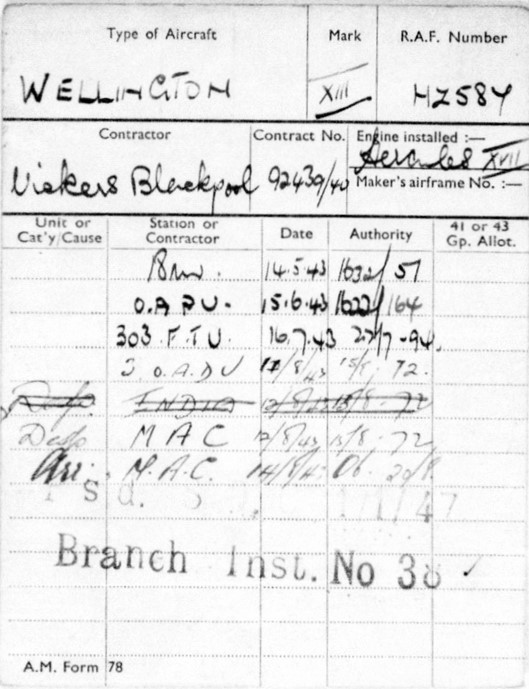 Type of Aircraft Mark R.A.F. Number
WELLINGTON XIII HZ584
Contractor Contract No. Engine installed :—
Vickers Blackpool 92439/40 Hercules XVII
Maker's airframe No. :—
Unit or Cat'y/Cause Station or Contractor Date Authority 41 or 43 Gp. Allot.
14.5.43 1632/51
O.A.P.U. 15.6.43 1622/164
303 F.T.U. 16.7.43 27/7 - 94.
3 O.A.D.U /8/43 15/8. 72.
INDIA 12/8/43 15/8 - 72
Desp M A C 12/8/43 15/8 - 72
Arr. M.A.C. 14/8/43 20/8.
Branch Inst. No 38 ✓
A.M. Form 78